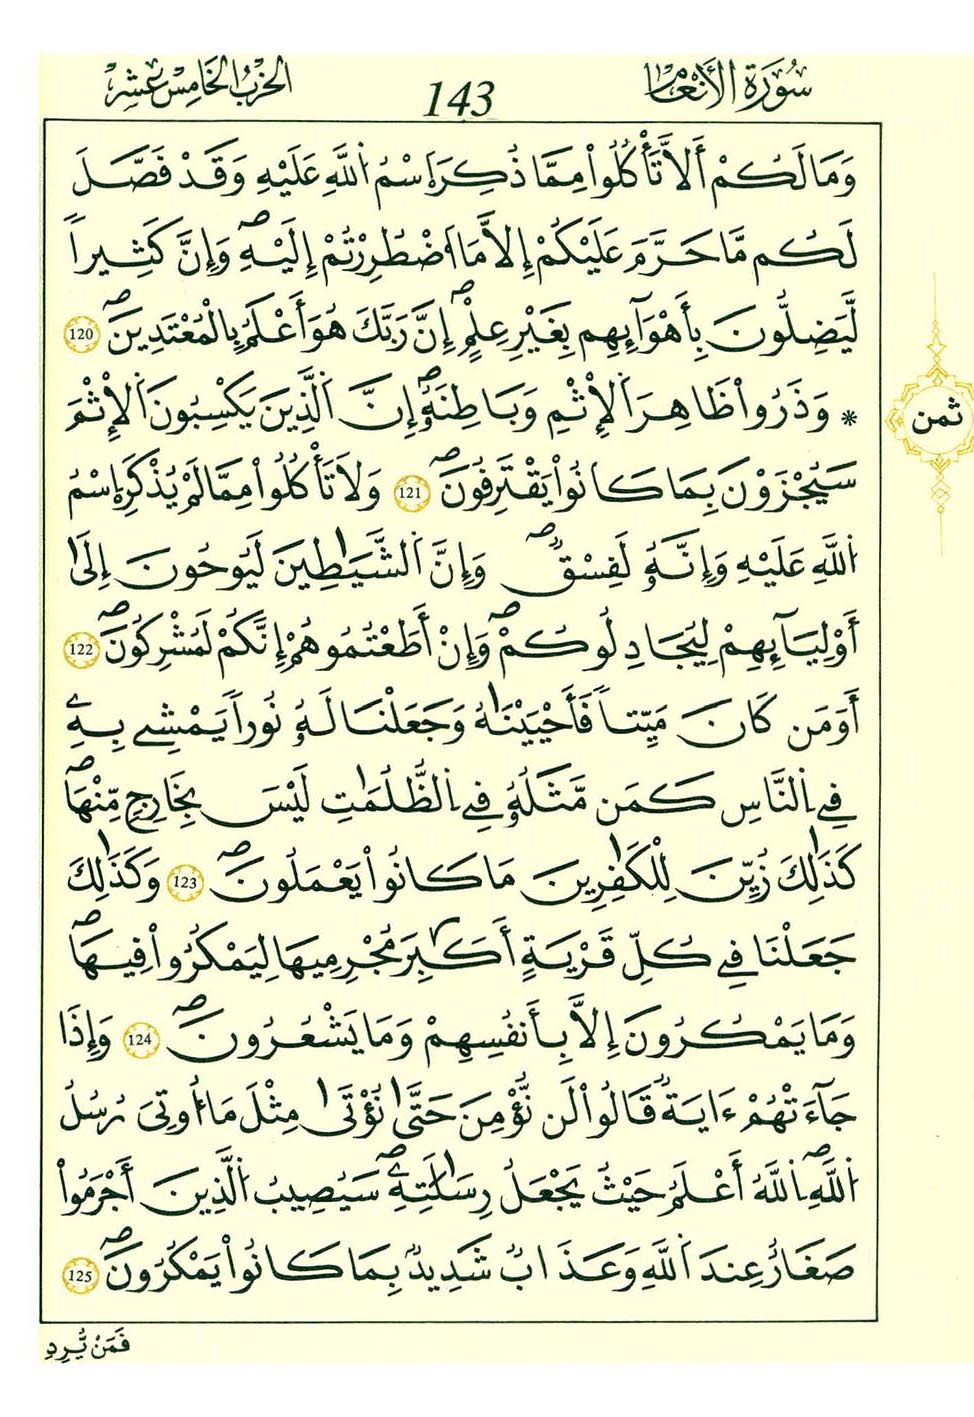 سُورَةُ الأَنْعَامِ
143
الحِزْبُ الخَامِسُ عَشَرَ
وَمَا لَكُمْ أَلاَّ تَأْكُلُواْ مِمَّا ذُكِرَ اَسْمُ اُللَّهِ عَلَيْهِ وَقَدْ فَصَّلَ
لَكُم مَّا حَرَّمَ عَلَيْكُمْ إِلاَّ مَا اَضْطُرِرْتُمْ إِلَيْهِۖ وَإِنَّ كَثِيراً
لَّيَضِلُّونَ بِأَهْوَآئِهِم بِغَيْرِ عِلْمٍۖ إِنَّ رَبَّكَ هُوَ أَعْلَمُ بِالْمُعْتَدِينَۖ 120
* وَذَرُواْ ظَاهِرَ اَلاِثْمِ وَبَاطِنَهُۥۖ إِنَّ اَلَّذِينَ يَكْسِبُونَ اَلاِثْمَ
سَيُجْزَوْنَ بِمَا كَانُواْ يَقْتَرِفُونَۖ 121 وَلاَ تَأْكُلُواْ مِمَّا لَمْ يُذْكَرِ اِسْمُ
اُللَّهِ عَلَيْهِ وَإِنَّهُۥ لَفِسْقٌۖ وَإِنَّ اَلشَّيَٰطِينَ لَيُوحُونَ إِلَىٰ
أَوْلِيَآئِهِمْ لِيُجَادِلُوكُمْۖ وَإِنْ أَطَعْتُمُوهُمْ إِنَّكُمْ لَمُشْرِكُونَۖ 122
أَوَمَن كَانَ مَيِّتاً فَأَحْيَيْنَٰهُ وَجَعَلْنَا لَهُۥ نُوراً يَمْشِے بِهِۦ
فِے اِلنَّاسِ كَمَن مَّثَلُهُۥ فِے اِلظُّلُمَٰتِ لَيْسَ بِخَارِجٍ مِّنْهَاۖ
كَذَٰلِكَ زُيِّنَ لِلْكَٰفِرِينَ مَا كَانُواْ يَعْمَلُونَۖ 123 وَكَذَٰلِكَ
جَعَلْنَا فِے كُلِّ قَرْيَةٍ أَكَٰبِرَ مُجْرِمِيهَا لِيَمْكُرُواْ فِيهَاۖ
وَمَا يَمْكُرُونَ إِلاَّ بِأَنفُسِهِمْ وَمَا يَشْعُرُونَۖ 124 وَإِذَا
جَآءَتْهُمْ ءَايَةٌ قَالُواْ لَن نُّؤْمِنَ حَتَّىٰ نُؤْتَىٰ مِثْلَ مَا أُوتِيَ رُسُلُ
اُللَّهِۖ اِللَّهُ أَعْلَمُ حَيْثُ يَجْعَلُ رِسَٰلَٰتِهِۦۖ سَيُصِيبُ اُلَّذِينَ أَجْرَمُواْ
صَغَارٌ عِندَ اَللَّهِ وَعَذَابٌ شَدِيدٌ بِمَا كَانُواْ يَمْكُرُونَۖ 125
ثمن
فَمَنْ يُّرِدِ